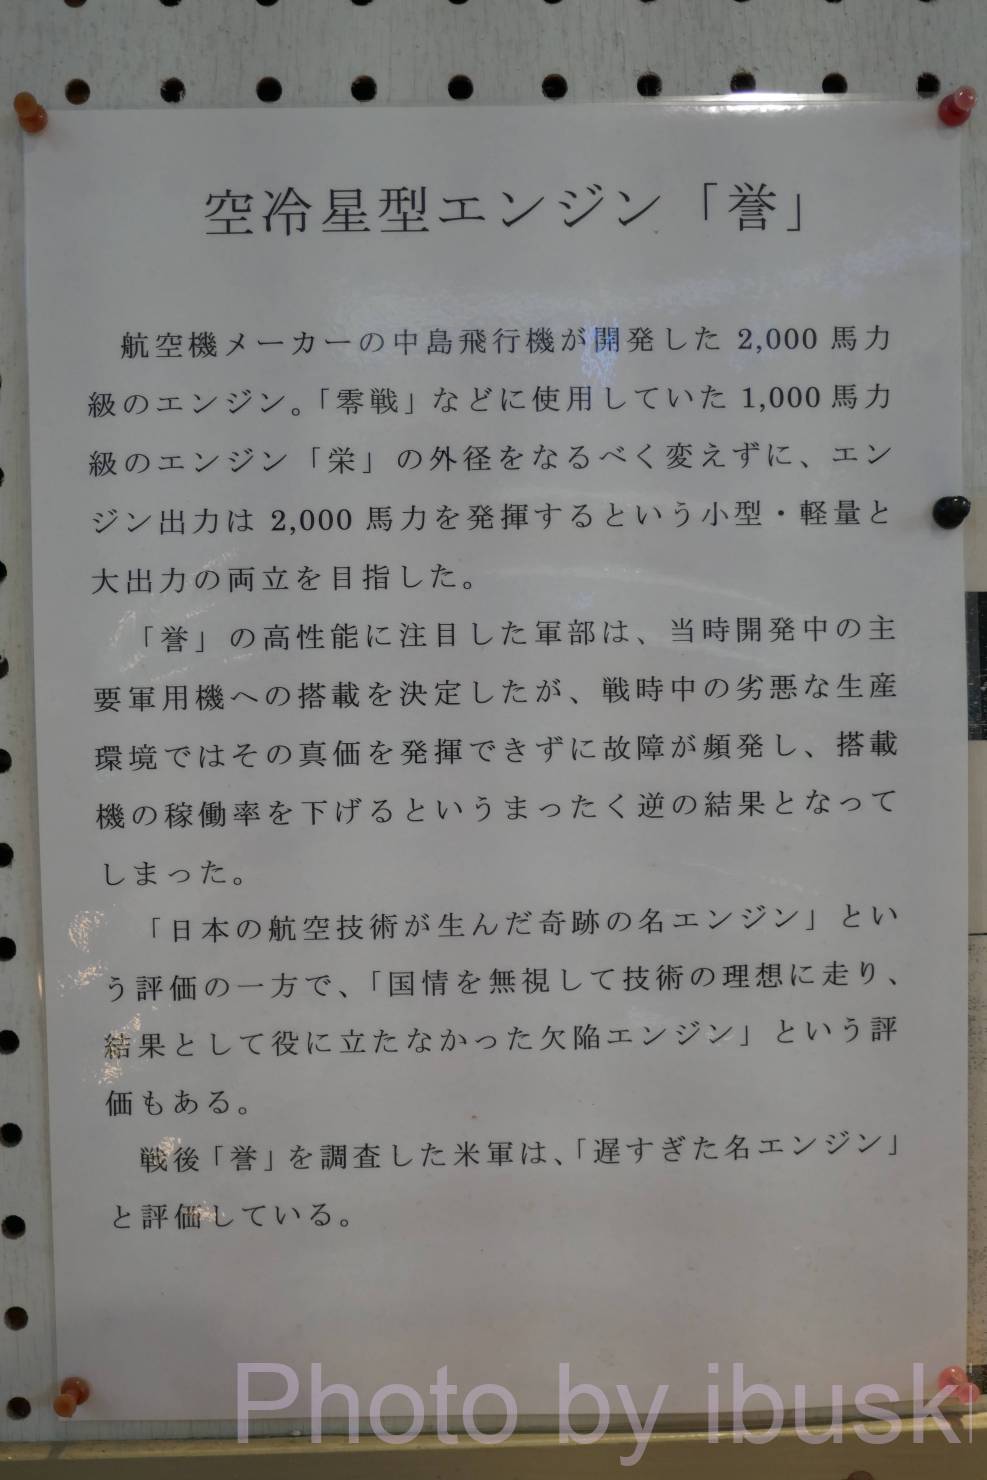 空冷星型エンジン「誉」
航空機メーカーの中島飛行機が開発した 2,000 馬力
級のエンジン。「零戦」などに使用していた 1,000 馬力
級のエンジン「栄」の外径をなるべく変えずに、エン
ジン出力は 2,000 馬力を発揮するという小型・軽量と
大出力の両立を目指した。
「誉」の高性能に注目した軍部は、当時開発中の主
要軍用機への搭載を決定したが、戦時中の劣悪な生産
環境ではその真価を発揮できずに故障が頻発し、搭載
機の稼働率を下げるというまったく逆の結果となって
しまった。
「日本の航空技術が生んだ奇跡の名エンジン」とい
う評価の一方で、「国情を無視して技術の理想に走り、
結果として役に立たなかった欠陥エンジン」という評
価もある。
戦後「誉」を調査した米軍は、「遅すぎた名エンジン」
と評価している。
Photo by ibuski